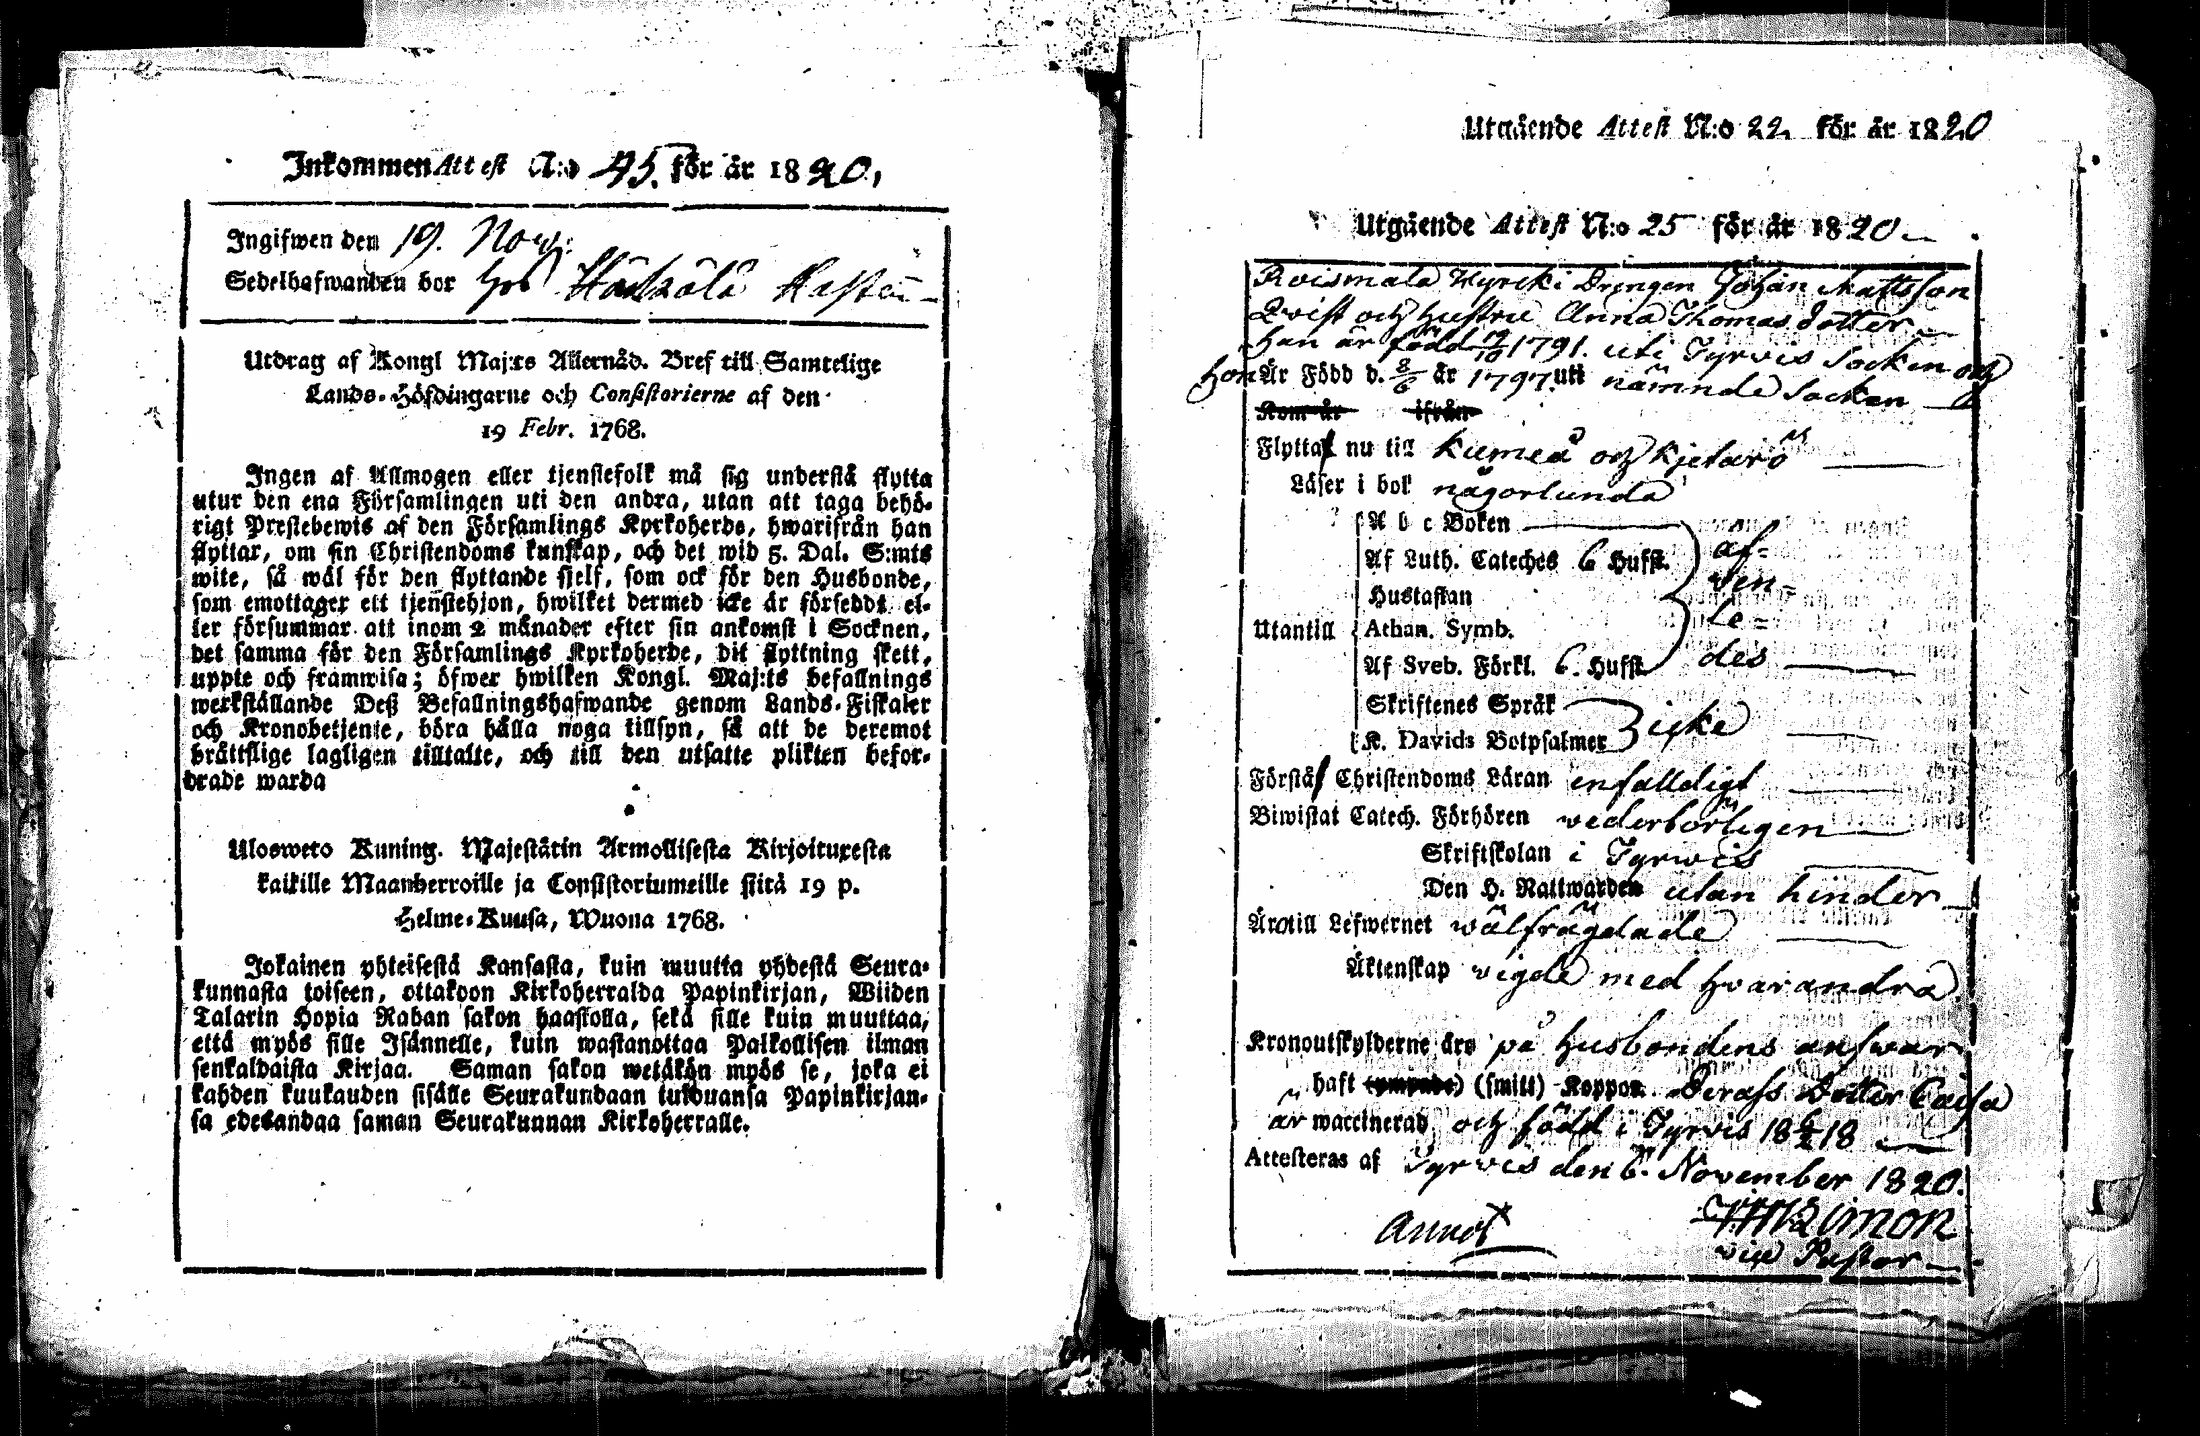 Inkommen Attest N:o 45. för år 1820,
Ingifwen den 19. Nov:
Sedelhafwanden bor hos
Utdrag af Kongl Maj:ts Allernåd. Bref till Samtelige
Lands-Höfdingarne och Consistorierne af den
19 Febr. 1768.
Ingen af Allmogen eller tjenstefolk må sig understå flytta
utur den ena Församlingen uti den andra, utan att taga behö-
rigt Prestebewis af den Församlings Kyrkoherde, hwarifrån han
flyttar, om sin Christendoms kunskap, och det wid 5. Dal. S:mts
wite, så wäl för den flyttande sjelf, som ock för den Husbonde,
som emottager ett tjenstehjon, hwilket dermed icke är förseddt el-
ler försummar att inom 2 månader efter sin ankomst i Socknen,
det samma för den Församlings Kyrkoherde, dit flyttning skett,
uppte och framwisa; öfwer hwilken Kongl. Maj:ts befallnings
werkställande Deß Befallningshafwande genom Lands-Fiskaler
och Kronobetjente, böra hålla noga tillsyn, så att de deremot
bråttslige lagligen tilltalte, och till den utsatte plikten befor-
drade warda
Ulosweto Kuning. Majestätin Armollisesta Kirjoituxesta
kaikille Maanherroille ja Consistoriumeille siitä 19 p.
Helme-Kuusa, Wuona 1768.
Jokainen yhteisestä Kansasta, kuin muutta yhdestä Seura-
kunnasta toiseen, ottakoon Kirkoherralda Papinkirjan, Wiiden
Talarin Hopia Rahan sakon haastolla, sekä sille kuin muuttaa,
että myös sille Isännelle, kuin wastanottaa Palkollisen ilman
senkaldaista Kirjaa. Saman sakon wetäkön myös se, joka ei
kahden kuukauden sisälle Seurakundaan tulduansa Papinkirjan-
sa edesandaa saman Seurakunnan Kirkoherralle.
Utgående Attest N:o 22 för år 1820
Utgående Attest N:o 25 för år 1820
Roismala Kyrcki Drengen Johan Mattsson
Qvist och hustru Anna Thomasdotter
Han är född 19/10 1791. uti Tyrvis Socken och
hon Är Född d. 8/6 år 1797. uti nämnde Socken
Kom år ifrån
Flytta nu till Kumeå och Kjetarö
Läser i bok någorlunda
A b c Boken
Af Luth. Cateches 6 Hufst. af-
Hustaflan ven-
Utantill Athan. Symb. le-
Af Sveb. Förkl. 6. Hufst. des
Skriftenes Språk
K. Davids Botpsalmer icke
Förstå Christendoms Läran enfalldigt
Biwistat Catech. Förhören vederbörligen
Skriftskolan i Tyrwis
Den H. Nattwarden utan hinder
Äro till Lefwernet wälfrägdade
Äktenskap vigde med hvarandra
Kronoutskylderne äro på husbondens answar
haft (ympade) (smitt) Koppor. Derass Dotter Caisa
är waccinerad och född i Tyrvis 18 6/2 18
Attesteras af Tyrvis den 6. November 1820.
vice Pastor